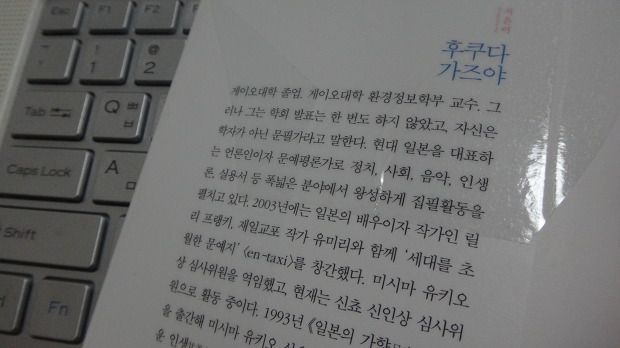 Esc
F1
F2
!
1
@
2
Tab
Q
ㅃ
ㅂ
Caps Lock
A
ㅁ
Shift
Fn
지은이
후쿠다
가즈야
게이오대학 졸업. 게이오대학 환경정보학부 교수. 그
러나 그는 학회 발표는 한 번도 하지 않았고, 자신은
학자가 아닌 문필가라고 말한다. 현대 일본을 대표하
는 언론인이자 문예평론가로 정치, 사회, 음악, 인생
론, 실용서 등 폭넓은 분야에서 왕성하게 집필활동을
펼치고 있다. 2003년에는 일본의 배우이자 작가인 릴
리 프랭키, 재일교포 작가 유미리와 함께 '세대를 초
월한 문예지' 〈en-taxi〉를 창간했다. 미시마 유키오
상 심사위원을 역임했고, 현재는 신쵸 신인상 심사위
원으로 활동 중이다. 1993년 《일본의 가향
을 출간해 미시마 유키오
운 인생